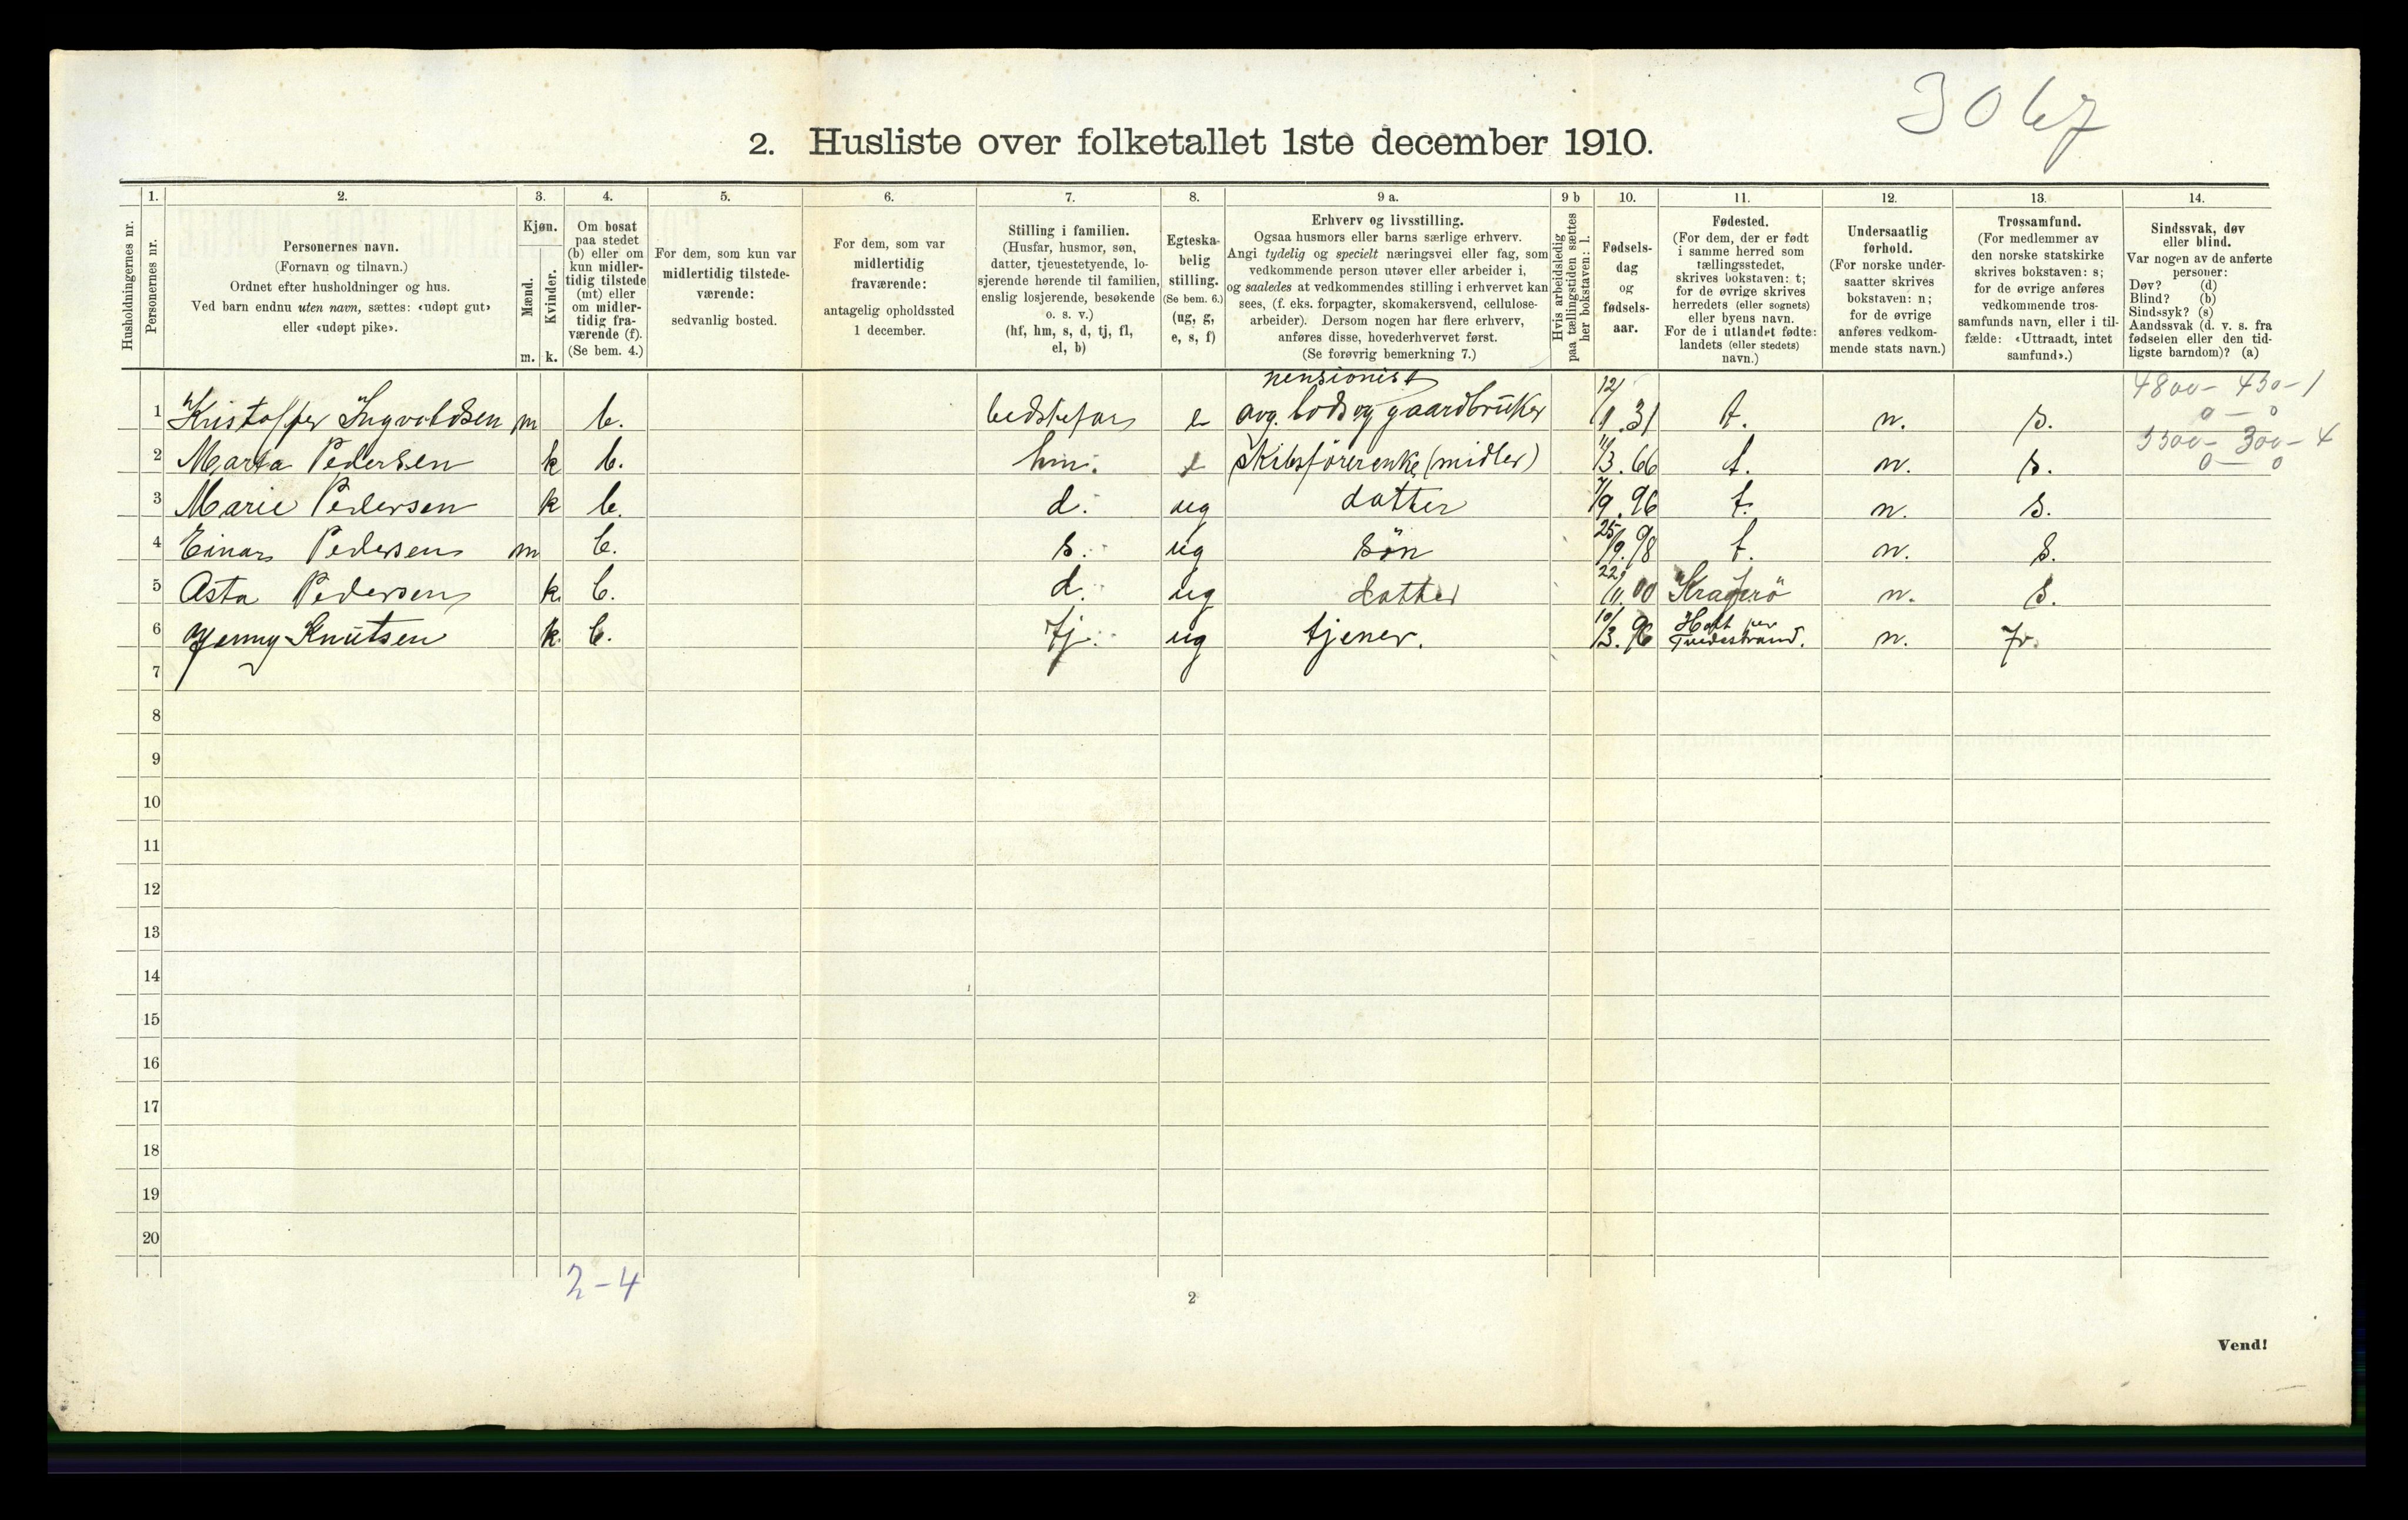 3067
2. Husliste over folketallet 1ste december 1910.
Husholdningernes nr.
1.
Personernes nr.
2.
Personernes navn.
(Fornavn og tilnavn.)
Ordnet efter husholdninger og hus.
Ved barn endnu uten navn, sættes: «udøpt gut»
eller «udøpt pike».
3.
Kjøn.
Mænd.
Kvinder.
m. k.
4.
Om bosat
paa stedet
(b) eller om
kun midler-
tidig tilstede
(mt) eller
om midler-
tidig fra-
værende (f).
(Se bem. 4.)
5.
For dem, som kun var
midlertidig tilstede-
værende:
sedvanlig bosted.
6.
For dem, som var
midlertidig
fraværende:
antagelig opholdssted
1 december.
7.
Stilling i familien.
(Husfar, husmor, søn,
datter, tjenestetyende, lo-
sjerende hørende til familien,
enslig losjerende, besøkende
o. s. v.)
(hf, hm, s, d, tj, fl,
el, b)
8.
Egteska-
belig
stilling.
(Se bem. 6.)
(ug, g,
e, s, f)
9 a.
Erhverv og livsstilling.
Ogsaa husmors eller barns særlige erhverv.
Angi tydelig og specielt næringsvei eller fag, som
vedkommende person utøver eller arbeider i,
og saaledes at vedkommendes stilling i erhvervet kan
sees, (f. eks. forpagter, skomakersvend, cellulose-
arbeider). Dersom nogen har flere erhverv,
anføres disse, hovederhvervet først.
(Se forøvrig bemerkning 7.)
9 b
Hvis arbeidsledig
paa tællingstiden sættes
her bokstaven: l.
10.
Fødsels-
dag
og
fødsels-
aar.
11.
Fødested.
(For dem, der er født
i samme herred som
tællingsstedet,
skrives bokstaven: t;
for de øvrige skrives
herredets (eller sognets)
eller byens navn.
For de i utlandet fødte:
landets (eller stedets)
navn.)
12.
Undersaatlig
forhold.
(For norske under-
saatter skrives
bokstaven: n;
for de øvrige
anføres vedkom-
mende stats navn.)
13.
Trossamfund.
(For medlemmer av
den norske statskirke
skrives bokstaven: s;
for de øvrige anføres
vedkommende tros-
samfunds navn, eller i til-
fælde: «Uttraadt, intet
samfund».)
14.
Sindssvak, døv
eller blind.
Var nogen av de anførte
personer:
Døv? (d)
Blind? (b)
Sindssyk? (s)
Aandssvak (d. v. s. fra
fødselen eller den tid-
ligste barndom)? (a)
pensionist
4800 - 430 - 1
1 Kristoffer Ingvoldsen m b. bedstefar e avg. lods og gaardbruker 12/11.31 t. n. s. 0 — 0
5500 - 300 - 4
2 Marta Pedersen k b. hm. e Skibsförerenke (midler) 11/3.66 t. n. s. 0 — 0
3 Marie Pedersen k b. d. ug datter 7/9.96 t. n. s.
4 Einar Pedersen m b. s. ug sön 25/9.98 t. n. s.
5 Asta Pedersen k. b. d. ug datter 22/11.00 Kragerö n. s.
6 Jenny Knutsen k. b. Tj. ug tjener. 10/3.96 Holt per Tvedestrand. n. Fr.
7
8
9
10
11
12
13
14
15
16
17
18
19
20
2 - 4
2
Vend!